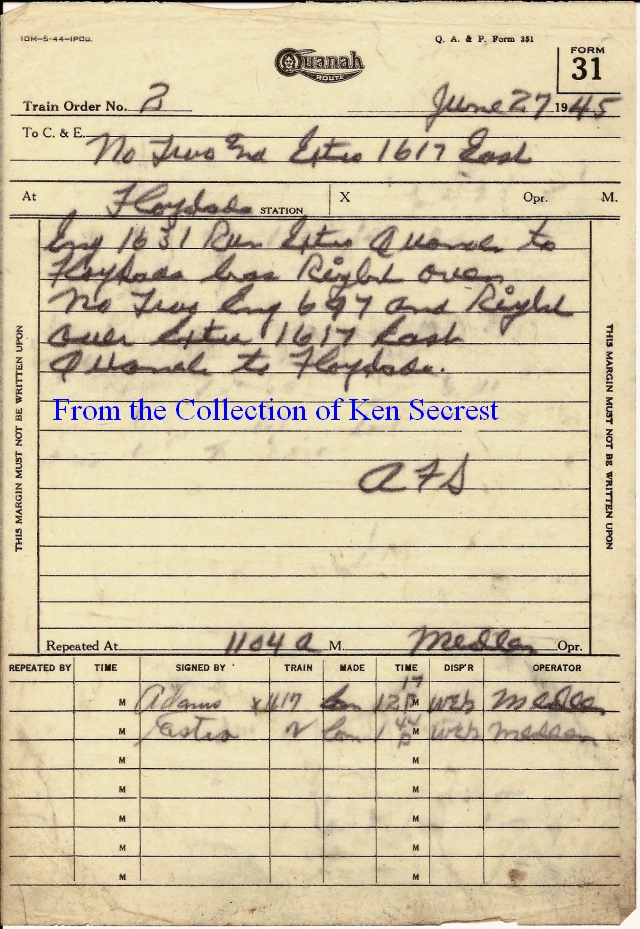 10M-5-44-IPCo.
Q. A. & P. Form 351
Quanah
ROUTE
FORM
31
Train Order No. 2
June 27 1945
To C. & E.
No Two and Extra 1617 East
At Floydada STATION X Opr. M.
Eng 1631 Run Extra Quanah to
Floydada has Right over
No Two Eng 697 and Right
over Extra 1617 East
Quanah to Floydada.
From the Collection of Ken Secrest
AFS
THIS MARGIN MUST NOT BE WRITTEN UPON
THIS MARGIN MUST NOT BE WRITTEN UPON
Repeated At 1104 A M. Medlen Opr.
REPEATED BY TIME SIGNED BY TRAIN MADE TIME DISP'R OPERATOR
M Adams x1617 Com 12 17 P M Medlen
M 2 Com 1 44 P M Medlen
M M
M M
M M
M M
M M
M M